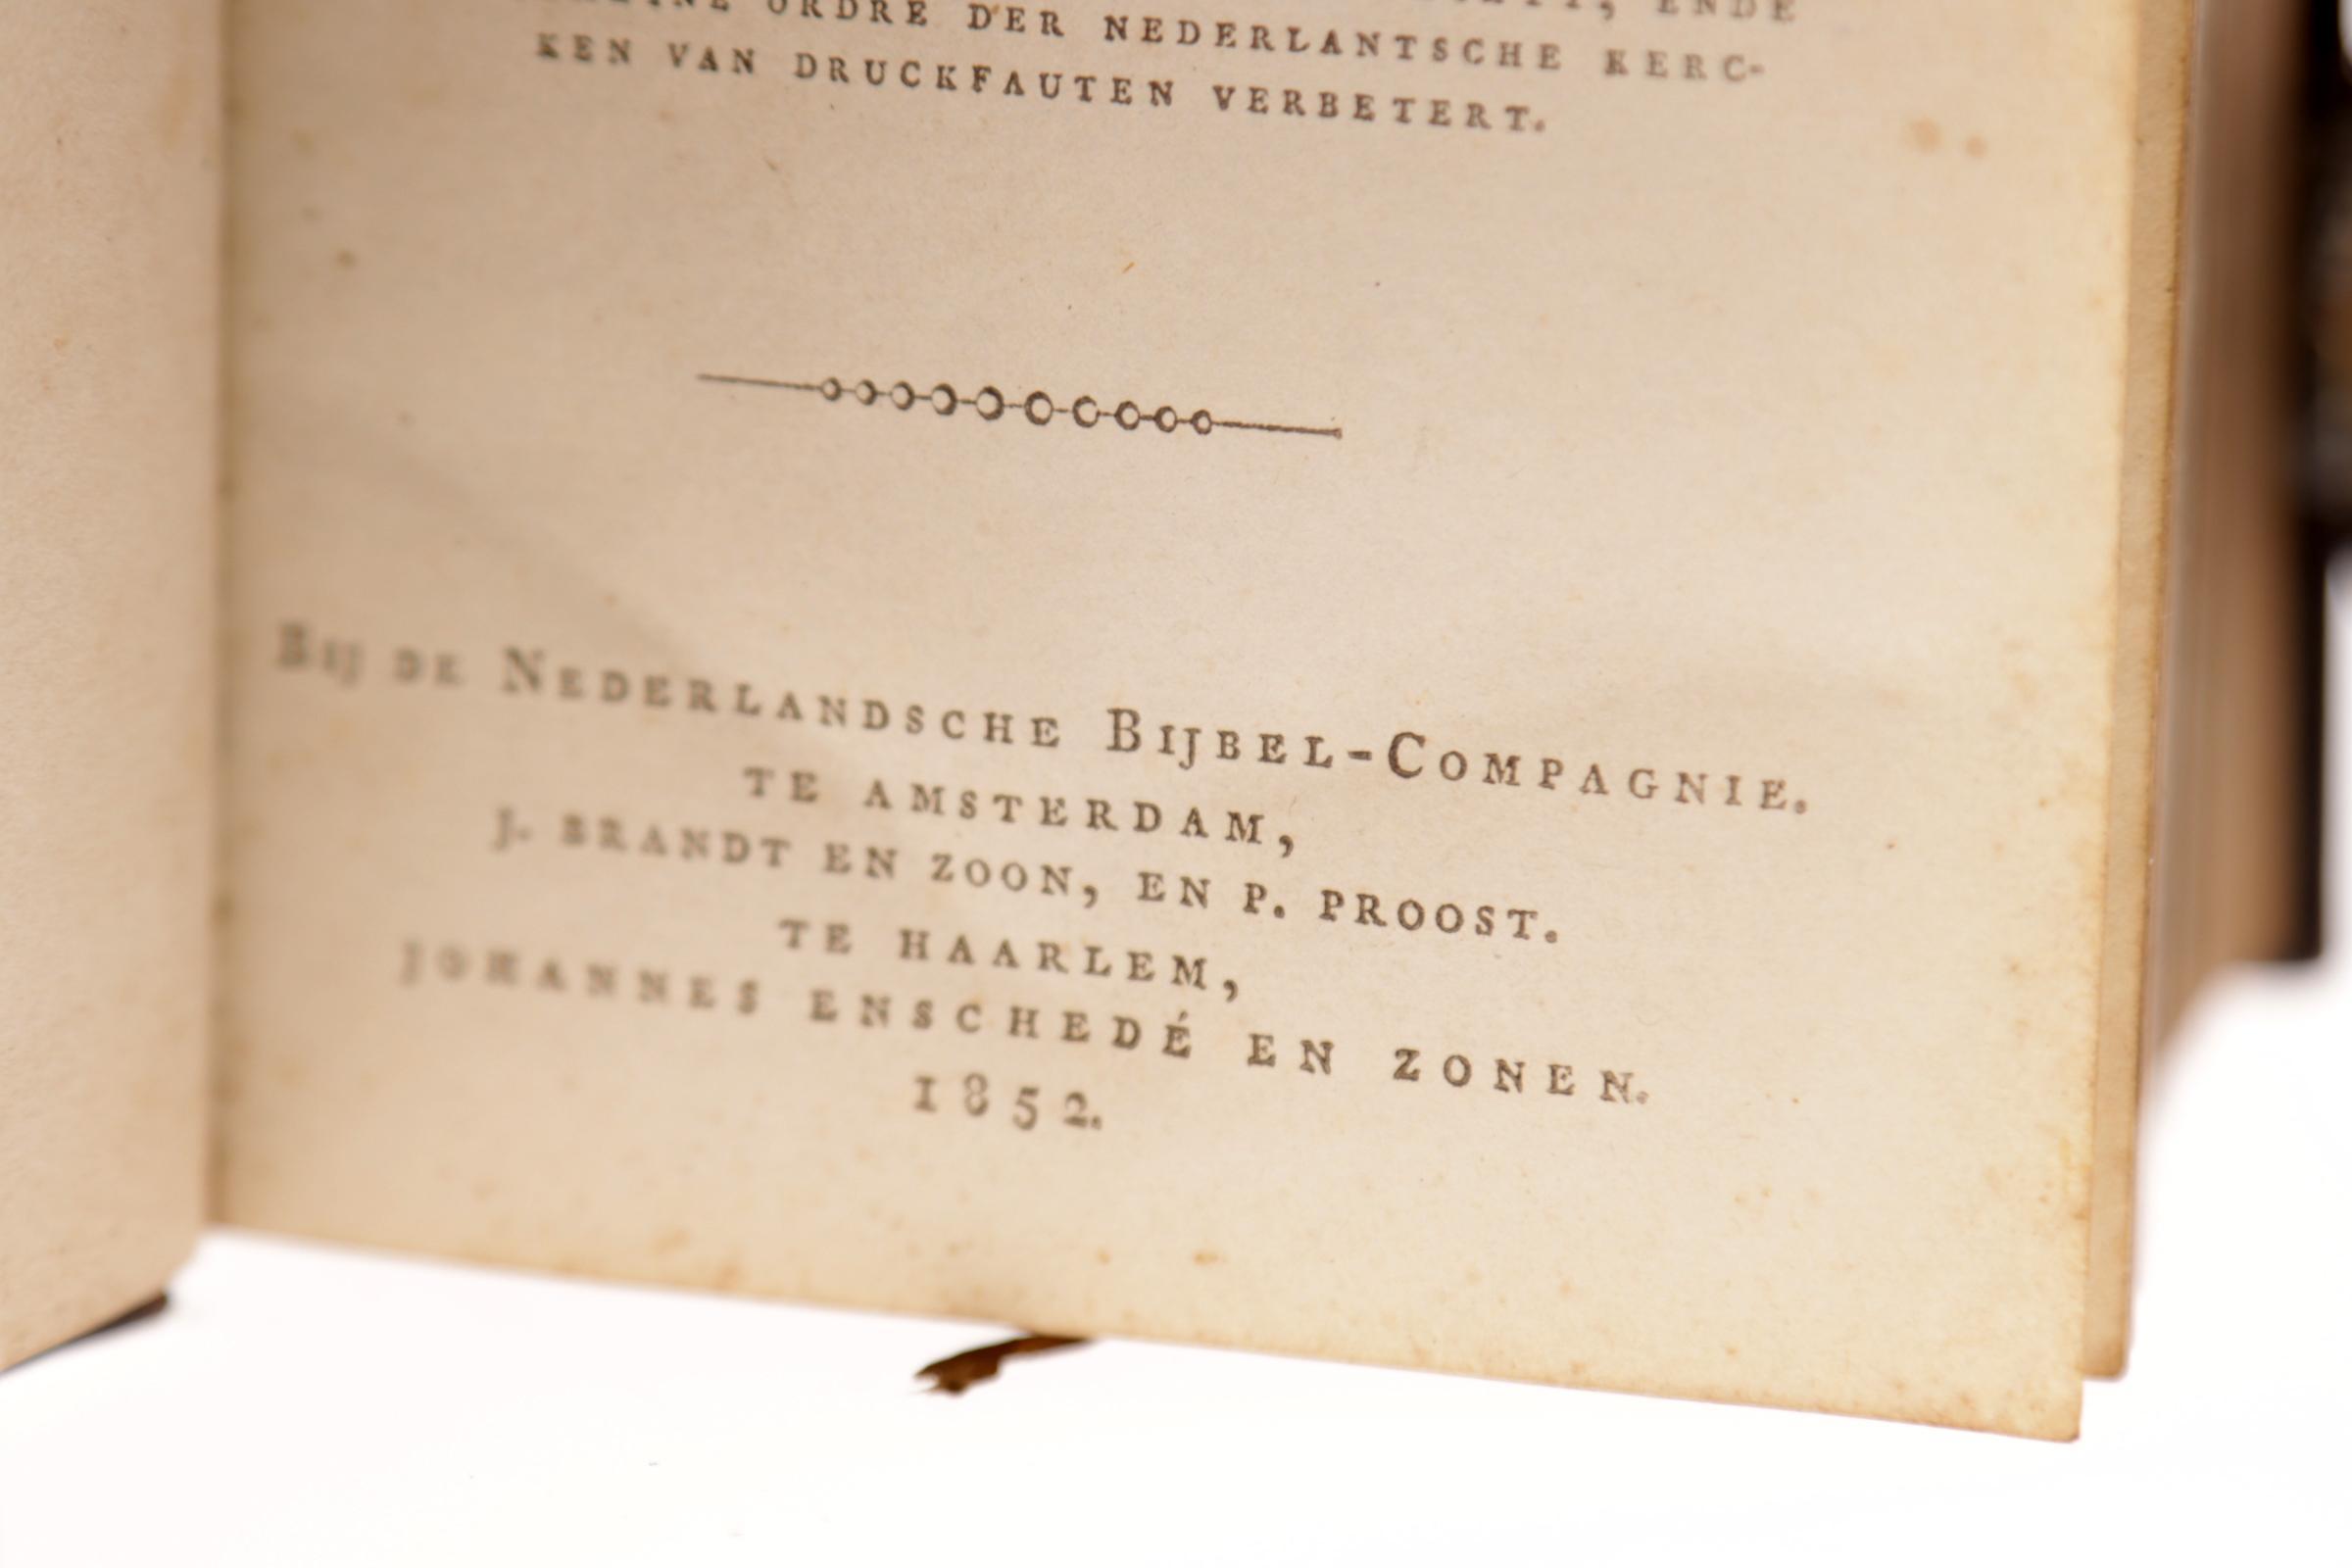 ORDRE DER NEDERLANTSCHE KERC-
KEN VAN DRUCKFAUTEN VERBETERT.
BIJ DE NEDERLANDSCHE BIJBEL-COMPAGNIE.
TE AMSTERDAM,
J. BRANDT EN ZOON, EN P. PROOST.
TE HAARLEM,
JOHANNES ENSCHEDÉ EN ZONEN.
1852.